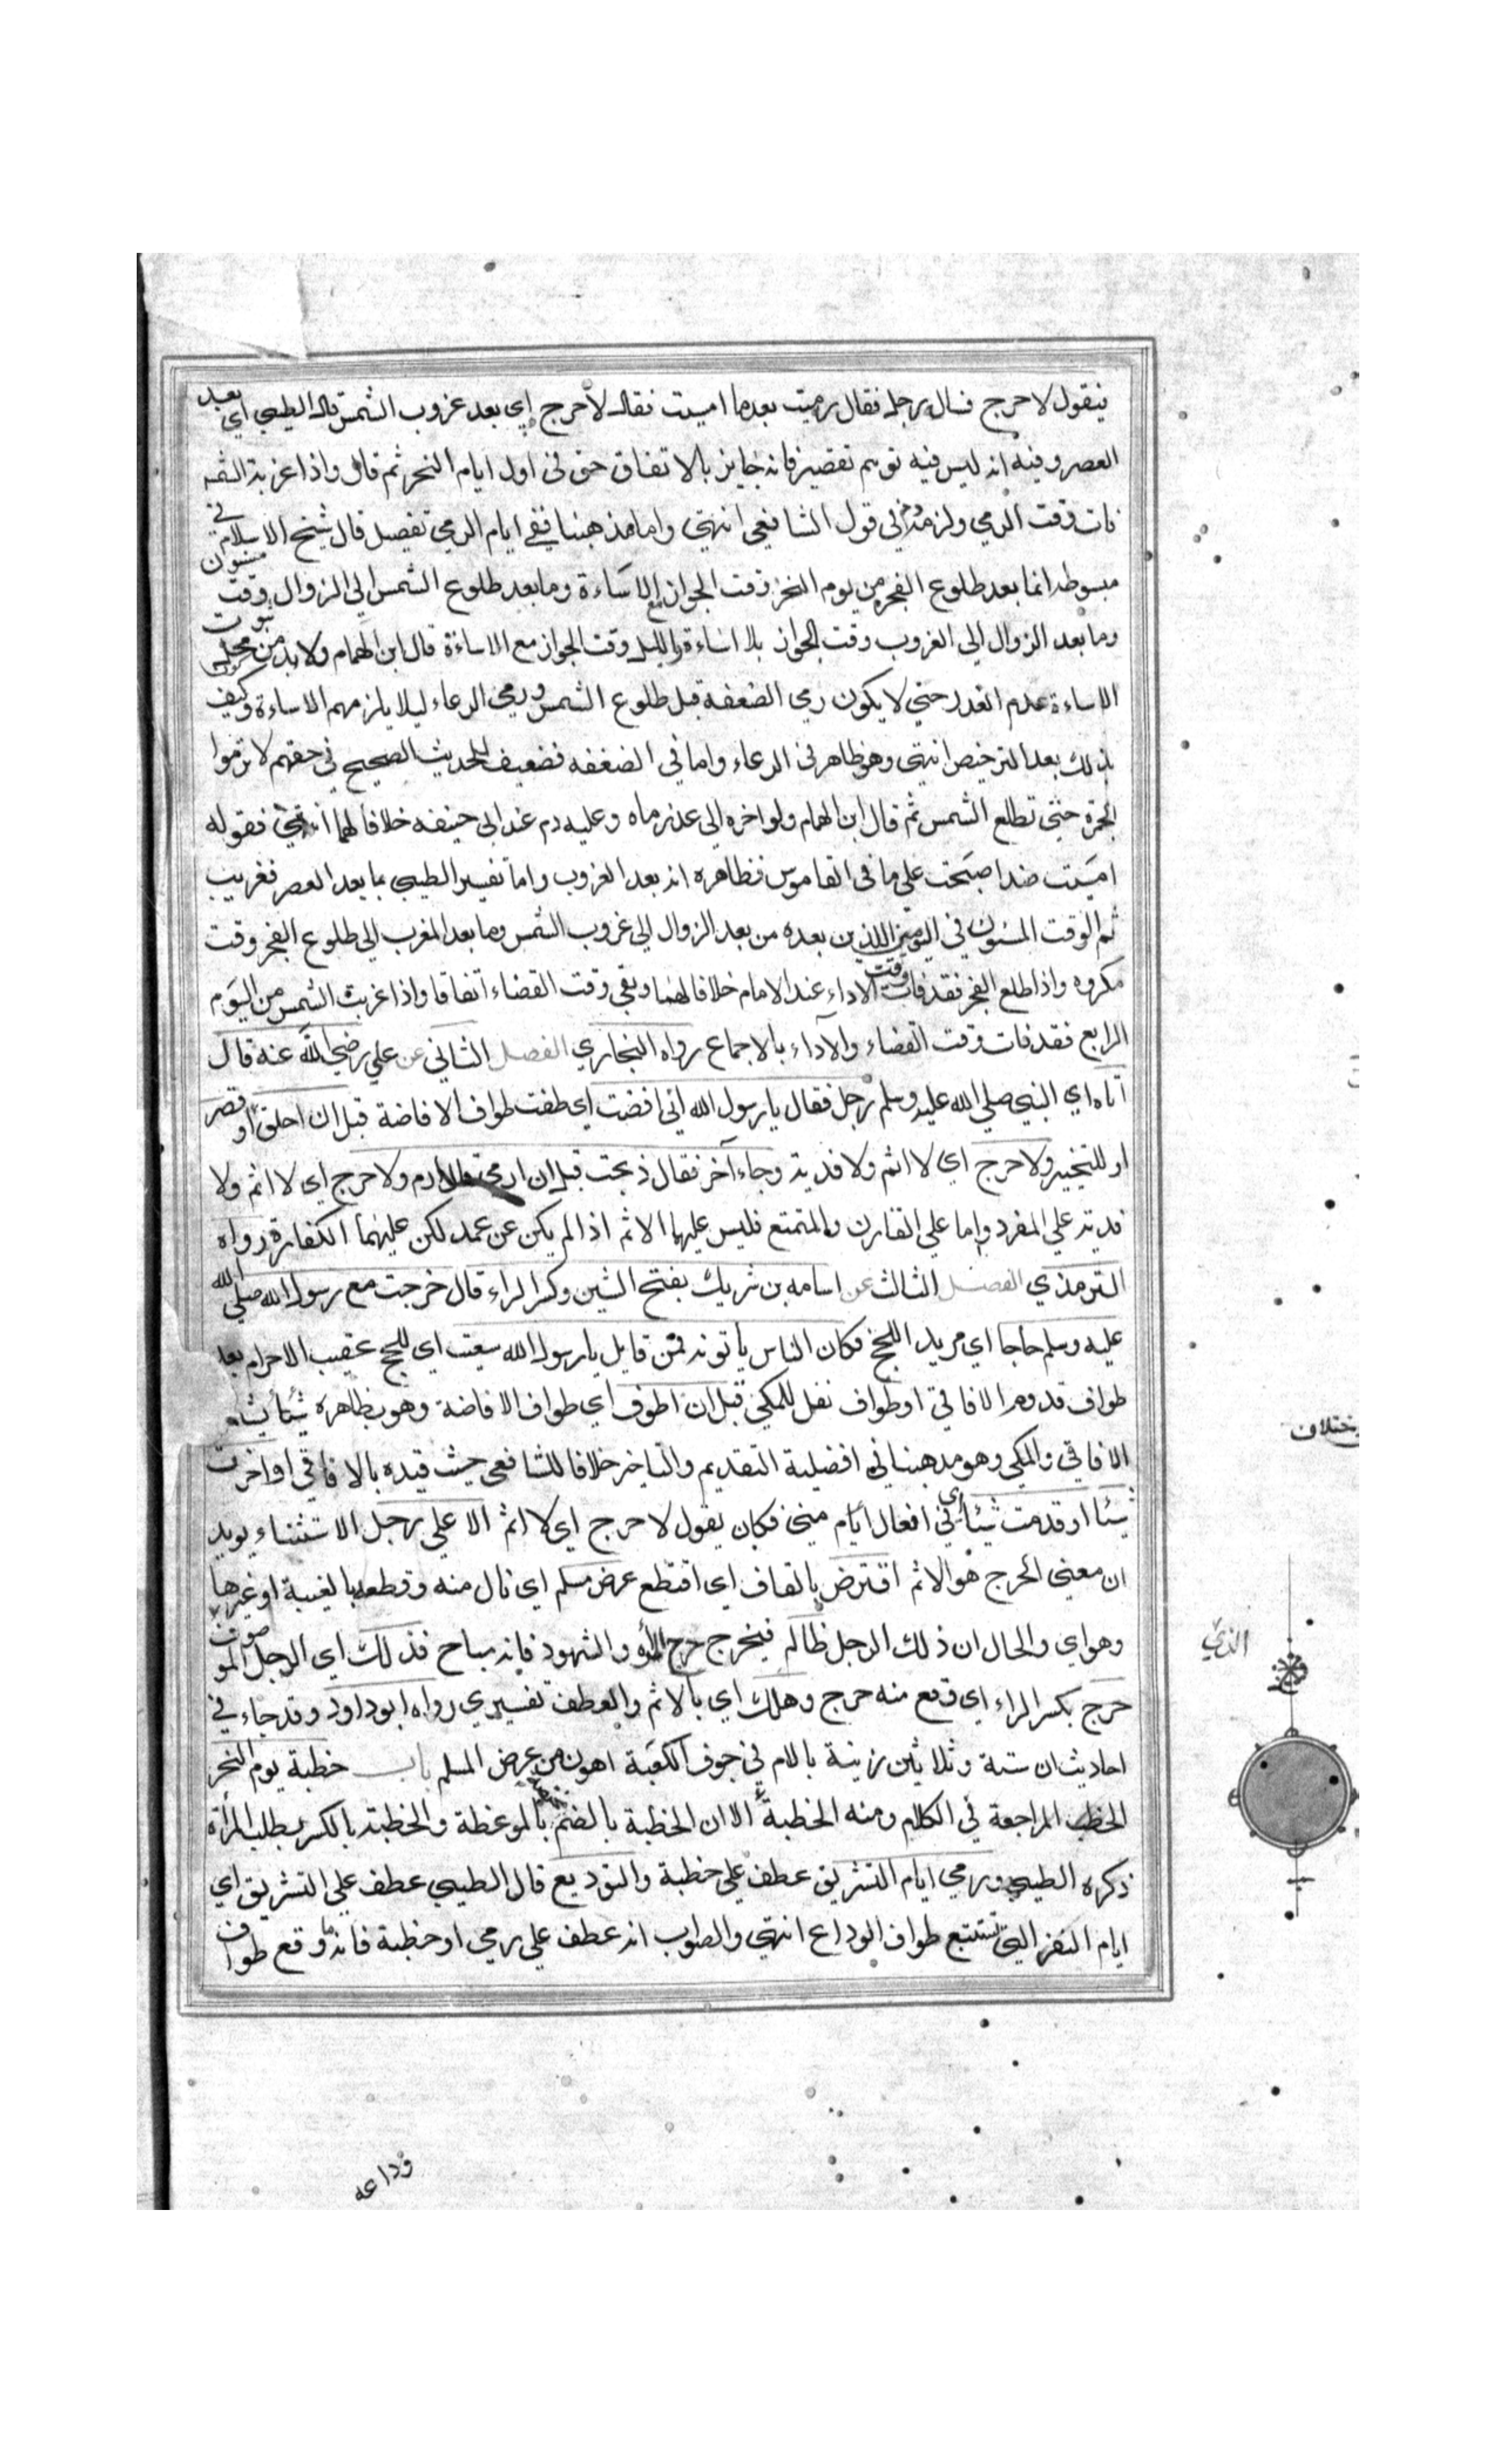 فيقول لا حرج فساله رجل فقال رميت بعدما امسيت فقال لا حرج اي بعد غروب الشمس قال الطيبي اي بعد
العصر وفيه انه ليس فيه توهم تقصير فانه جايز بالاتفاق حتى في اول ايام النحر ثم قال واذا غربت الشمس
فات وقت الرمي ولزمه دم في قول الشافعي انتهى واما مذهبنا ففي ايام الرمي تفصيل قال شيخ الاسلام في
مبسوطه انما بعد طلوع الفجر من يوم النحر وقت الجواز مع الاساءة وما بعد طلوع الشمس الي الزوال وقت مسنون
وما بعد الزوال الي الغروب وقت الجواز بلا اساءة والليل وقت الجواز مع الاساءة قال ابن الهمام ولا بد من محمل ثبوت
الاساءة عدم العذر حتي لا يكون رمي الضعفة قبل طلوع الشمس ورمي الرعاء ليلا يلزمهم الاساءة وكيف
بذلك بعد الترخيص انتهى وهو ظاهر في الرعاء واما في الضعفه فضعيف للحديث الصحيح في حقهم لا ترموا
الجمرة حتى تطلع الشمس ثم قال ابن الهمام ولو اخره الي غد رماه وعليه دم عند ابي حنيفه خلافا لهما انتهي فقوله
امسيت ضد اصبحت علي ما في القاموس فظاهره انه بعد الغروب واما تفسير الطيبي بما بعد العصر فغريب
ثم الوقت المسنون في اليومين اللذين بعده من بعد الزوال الي غروب الشمس وما بعد المغرب الي طلوع الفجر وقت
مكروه واذا طلع الفجر فقد فات وقت الاداء عند الامام خلافا لهما وبقي وقت القضاء اتفاقا واذا غربت الشمس من اليوم
الرابع فقد فات وقت القضاء والاداء بالاجماع رواه البخاري الفصل الثاني عن علي رضي الله عنه قال
أتاه اي النبي صلي الله عليه وسلم رجل فقال يا رسول الله اني افضت اي طفت طواف الافاضة قبل ان احلق او قصر
او للتخيير ولا حرج اي لا اثم ولا فدية وجاء آخر فقال ذبحت قبل ان ارمي قال ارم ولا حرج اي لا اثم ولا
فدية علي المفرد واما علي القارن والمتمتع فليس عليهما الاثم اذا لم يكن عن عمد لكن عليهما الكفارة رواه
الترمذي الفصل الثالث عن اسامه بن شريك بفتح الشين وكسر الراء قال خرجت مع رسول الله صلي الله
عليه وسلم حاجا اي مريد اللحج فكان الناس ياتونه فمن قايل يا رسول الله سعيت اي للحج عقيب الاحرام بعد
طواف قدوم الافاقي او طواف نفل للمكي قبل ان اطوف اي طواف الافاضة وهو بظاهره شيأ يشمل
الافاقي والمكي وهو مذهبنا في افضلية التقديم والتاخير خلافا للشافعي حيث قيده بالافاقي او اخرت
شيئا او قدمت شيئا اي في افعال ايام منى فكان يقول لا حرج اي لا اثم الا علي رجل الاستثناء يويد
ان معنى الحرج هو الاثم اقترض بالقاف اي اقتطع عرض مسلم اي نال منه وقطعه بالغيبة او غيرها
وهو اي والحال ان ذلك الرجل ظالم فيخرج جرح الرواة والشهود فانه مباح فذلك اي الرجل الموصوف
حرج بكسر الراء اي وقع منه حرج وهلك اي بالاثم والعطف تفسيري رواه ابو داود وقد جاء في
احاديث ان ستة وثلاثين زنية بالام في جوف الكعبة اهون من عرض المسلم باب خطبة يوم النحر
الخطب المراجعة في الكلام ومنه الخطبة الا ان الخطبة بالضم بالموعظة والخطبة بالكسر بطلب المرأة
ذكره الطيبي ورمي ايام التشريق عطف علي خطبة والتوديع قال الطيبي عطف علي التشريق اي
ايام النفر التي تستتبع طواف الوداع انتهي والصواب انه عطف علي رمي او خطبة فانه ما وقع طواف
وداعه
ختلاف
الذي